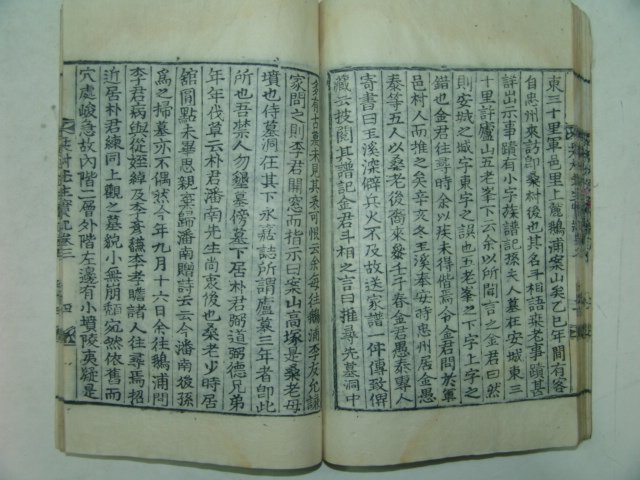 東三十里軍邑里上麓鵝浦案山矣乙巳年間有客
自忠州來訪卽桑村後也其名斗相語桑老事蹟甚
詳出示事蹟有小字族譜記孫夫人墓在安城東三
十里許廬山五老峯下云余以所聞言之金君曰然
則安城之城字東字之誤也五老峯下之下字上字之
錯也金君往尋時余以疾未得偕焉金君問於軍
邑村人而堆之矣辛亥冬玉溪奉安時忠州居金愚
泰等五人以桑老後裔來參壬子春金愚泰專人
寄書曰玉溪深僻兵火不及故送家譜一件傳致俾
藏云披閱其譜記金君斗相之言曰推尋先墓洞中
多有古墓未見其表可恨云余每往鵝浦李友允謙
家問之則李君開窓而指示曰案山高塚是桑老母
墳也侍墓洞在其下永嘉誌所謂廬墓三年者卽此
所也吾禁人勿墾墓傍墓下居朴君弼道弼德兄弟
年年伐草云朴君潘南先生尚衷後也桑老少時居
舘閣點未畢思親棄歸潘南贈詩云云今潘南後孫
爲之掃墓亦不偶然今年九月十六日余往鵝浦問
李君病與從姪緯及李彥謙李孝瞻諸人往尋焉招
近居朴君練同上觀之墓貌小無崩頹宛然依舊而
穴處峻急故內階二層外階左邊有小墳陵夷疑是